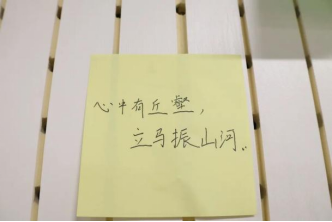 心中有丘壑，
立马振山河..